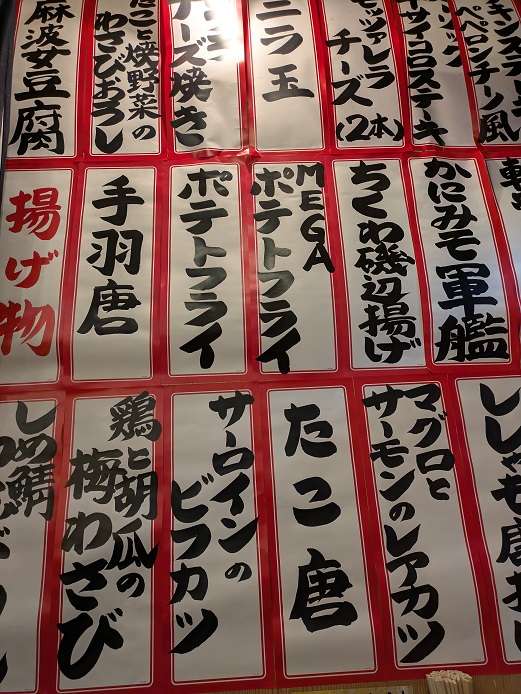 チキンステーキ
ペペロンチーノ風
サイコロステーキ
モッツァレラ
チーズ(2本)
ニラ玉
チーズ焼き
たこと焼野菜の
わさびおろし
麻波女豆腐
かにみそ軍艦
ちくわ磯辺揚げ
MEGA
ポテトフライ
ポテトフライ
手羽唐
揚げ物
ししゃも唐揚
マグロと
サーモンのレアカツ
たこ唐
サーロインの
ビフカツ
鶏と胡瓜の
梅わさび
しめ鯖